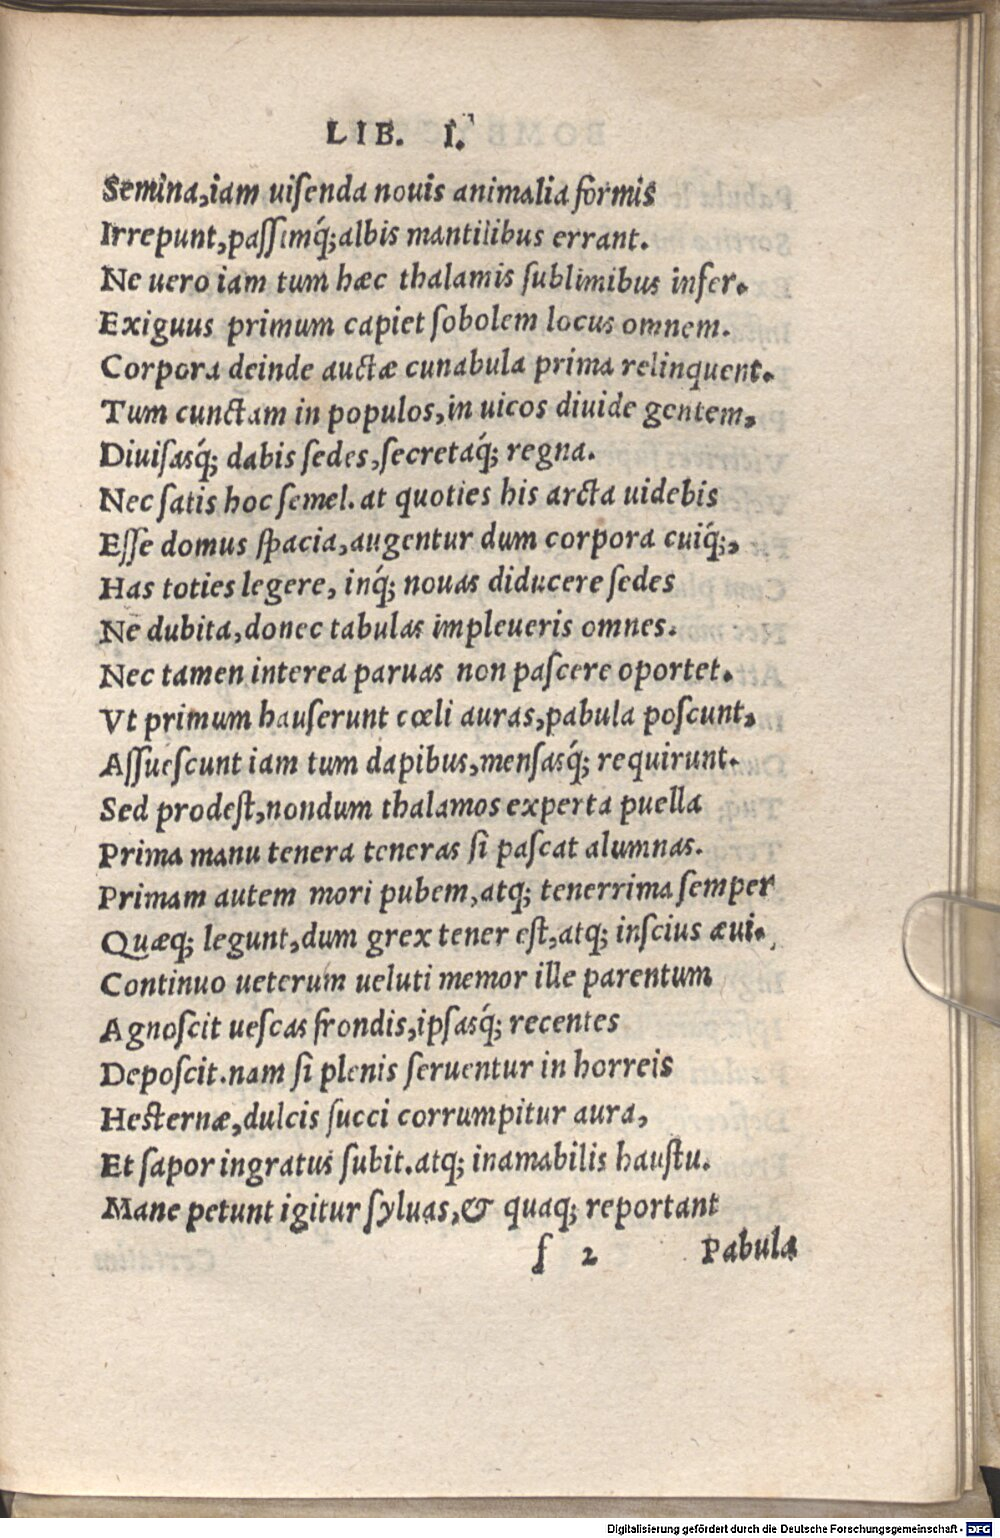 LIB. I.
Semina,iam uiſenda nouis animalia formis
Irrepunt,paſſimq́;albis mantilibus errant.
Ne uero iam tum hæc thalamis ſublimibus infer.
Exiguus primum capiet ſobolem locus omnem.
Corpora deinde auctæ cunabula prima relinquent.
Tum cunctam in populos,in uicos diuide gentem,
Diuiſasq́; dabis ſedes,ſecretaq́; regna.
Nec ſatis hoc ſemel. at quoties his arcta uidebis
Eſſe domus ſpacia,augentur dum corpora cuiq́;,
Has toties legere, inq́; nouas diducere ſedes
Ne dubita,donec tabulas impleueris omnes.
Nec tamen interea paruas non paſcere oportet.
Vt primum hauſerunt cœli auras,pabula poſcunt,
Aſſueſcunt iam tum dapibus,menſasq́; requirunt.
Sed prodeſt,nondum thalamos experta puella
Prima manu tenera teneras ſi paſcat alumnas.
Primam autem mori pubem,atq; tenerrima ſemper
Quæq; legunt,dum grex tener eſt,atq; inſcius æui.
Continuo ueterum ueluti memor ille parentum
Agnoſcit ueſcas frondis,ipſasq́; recentes
Depoſcit.nam ſi plenis ſeruentur in horreis
Heſternæ,dulcis ſucci corrumpitur aura,
Et ſapor ingratus ſubit.atq; inamabilis hauſtu.
Mane petunt igitur ſyluas,& quaq; reportant
f 2 Pabula
Digitalisierung gefördert durch die Deutsche Forschungsgemeinschaft - DFG